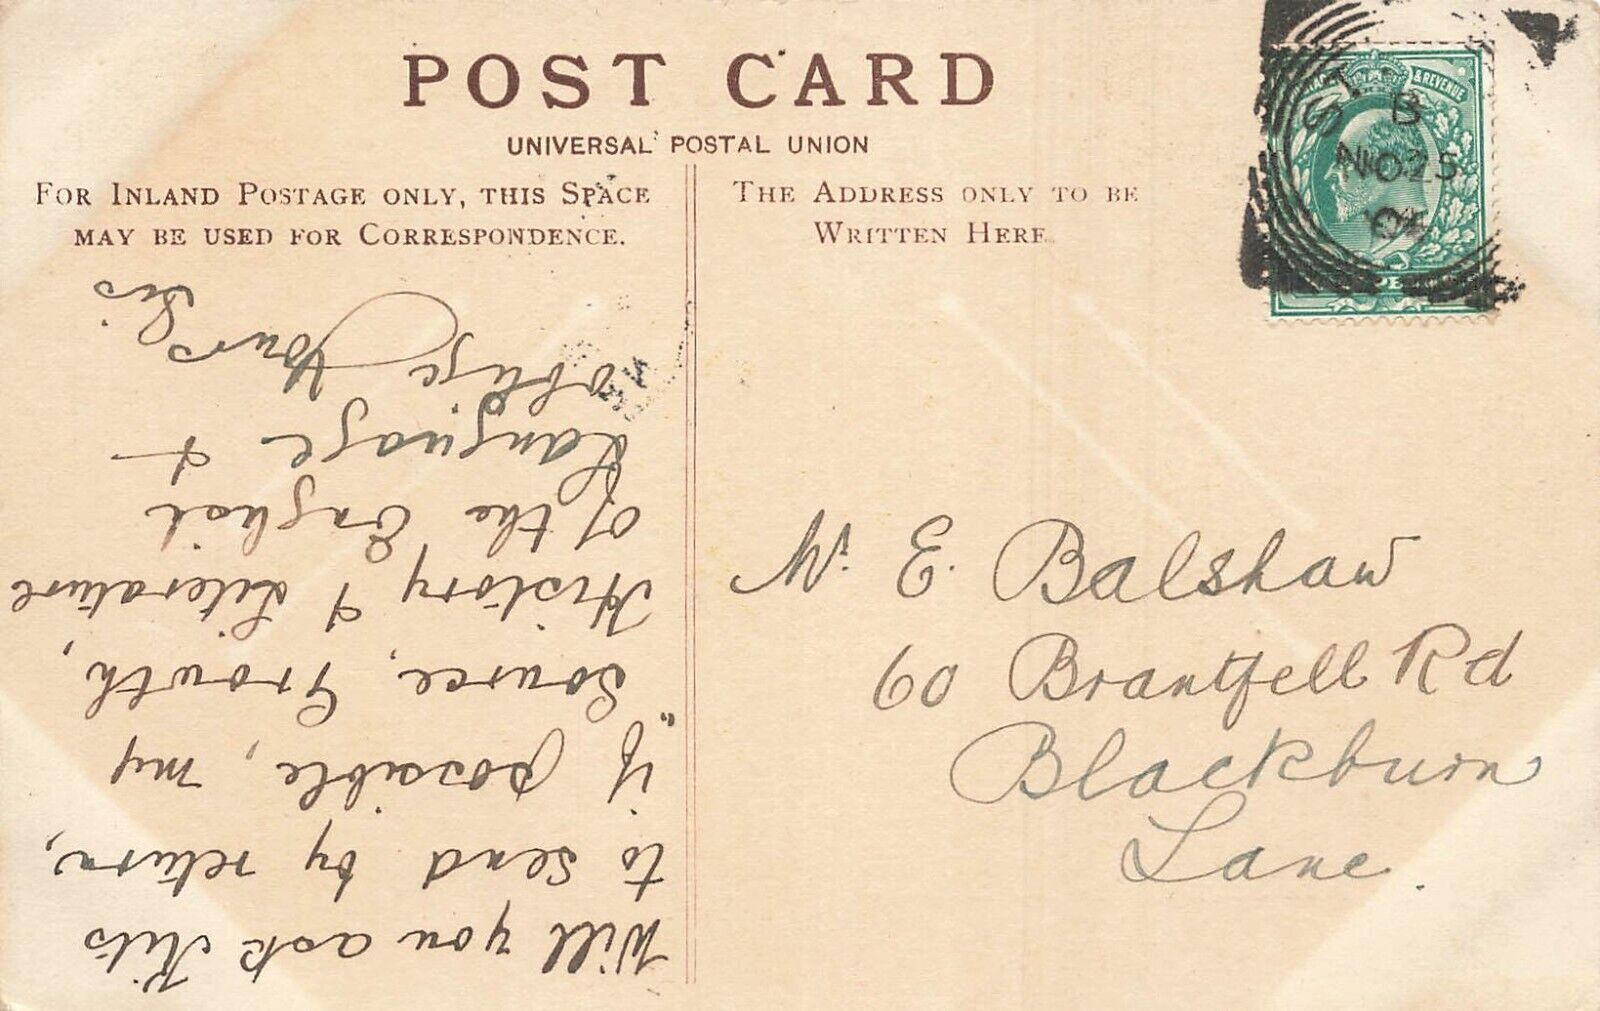 POST CARD
UNIVERSAL POSTAL UNION
FOR INLAND POSTAGE ONLY, THIS SPACE
MAY BE USED FOR CORRESPONDENCE.
THE ADDRESS ONLY TO BE
WRITTEN HERE
& REVENUE
B
NO 25
Will you ask Kits
to send by return,
if possible, my
"Source, Growth,
History & Literature
of the English
Language &
oblige Yours
Sis
Mr. E. Balshaw
60 Brantfell Rd
Blackburn
Lanc.